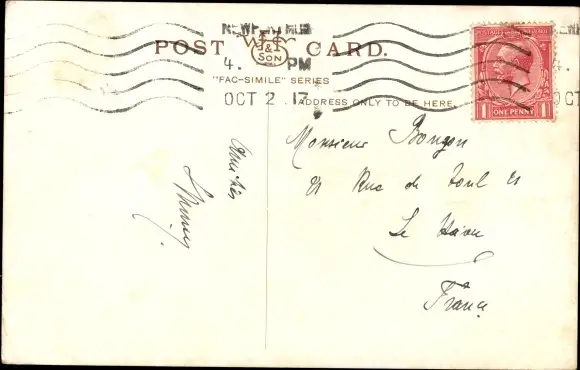 NEWPORT
POST CARD.
W H
J & S
SON
4. PM
"FAC-SIMILE" SERIES
OCT 2 17
ADDRESS ONLY TO BE HERE.
ONE PENNY
1 1
4.
OCT
Monsieur
Rue de Toul
Le
France
Amitiés